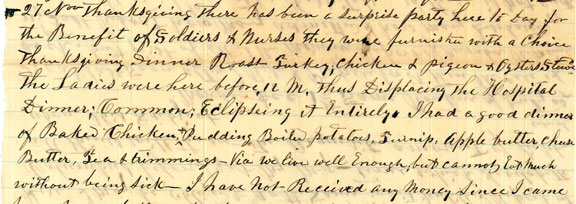 27 Nov Thanksgiving there has been a surprise party here to Day for
the Benefit of Soldiers & Nurses they were furnished with a Choice
Thanksgiving Dinner Roast Turkey, Chicken & Pigeon & Oysters Stewed
the Ladies were here before 12 M. thus Displacing the Hospital
Dinner; Common; Eclipseing it Entirely, I had a good dinner
of Baked Chicken Pudding Boiled potatoes, Turnip, apple butter, cheese
Butter, Tea & trimmings – Via we live well Enough, but cannot Eat much
without being sick – I have not Received any Money since I came